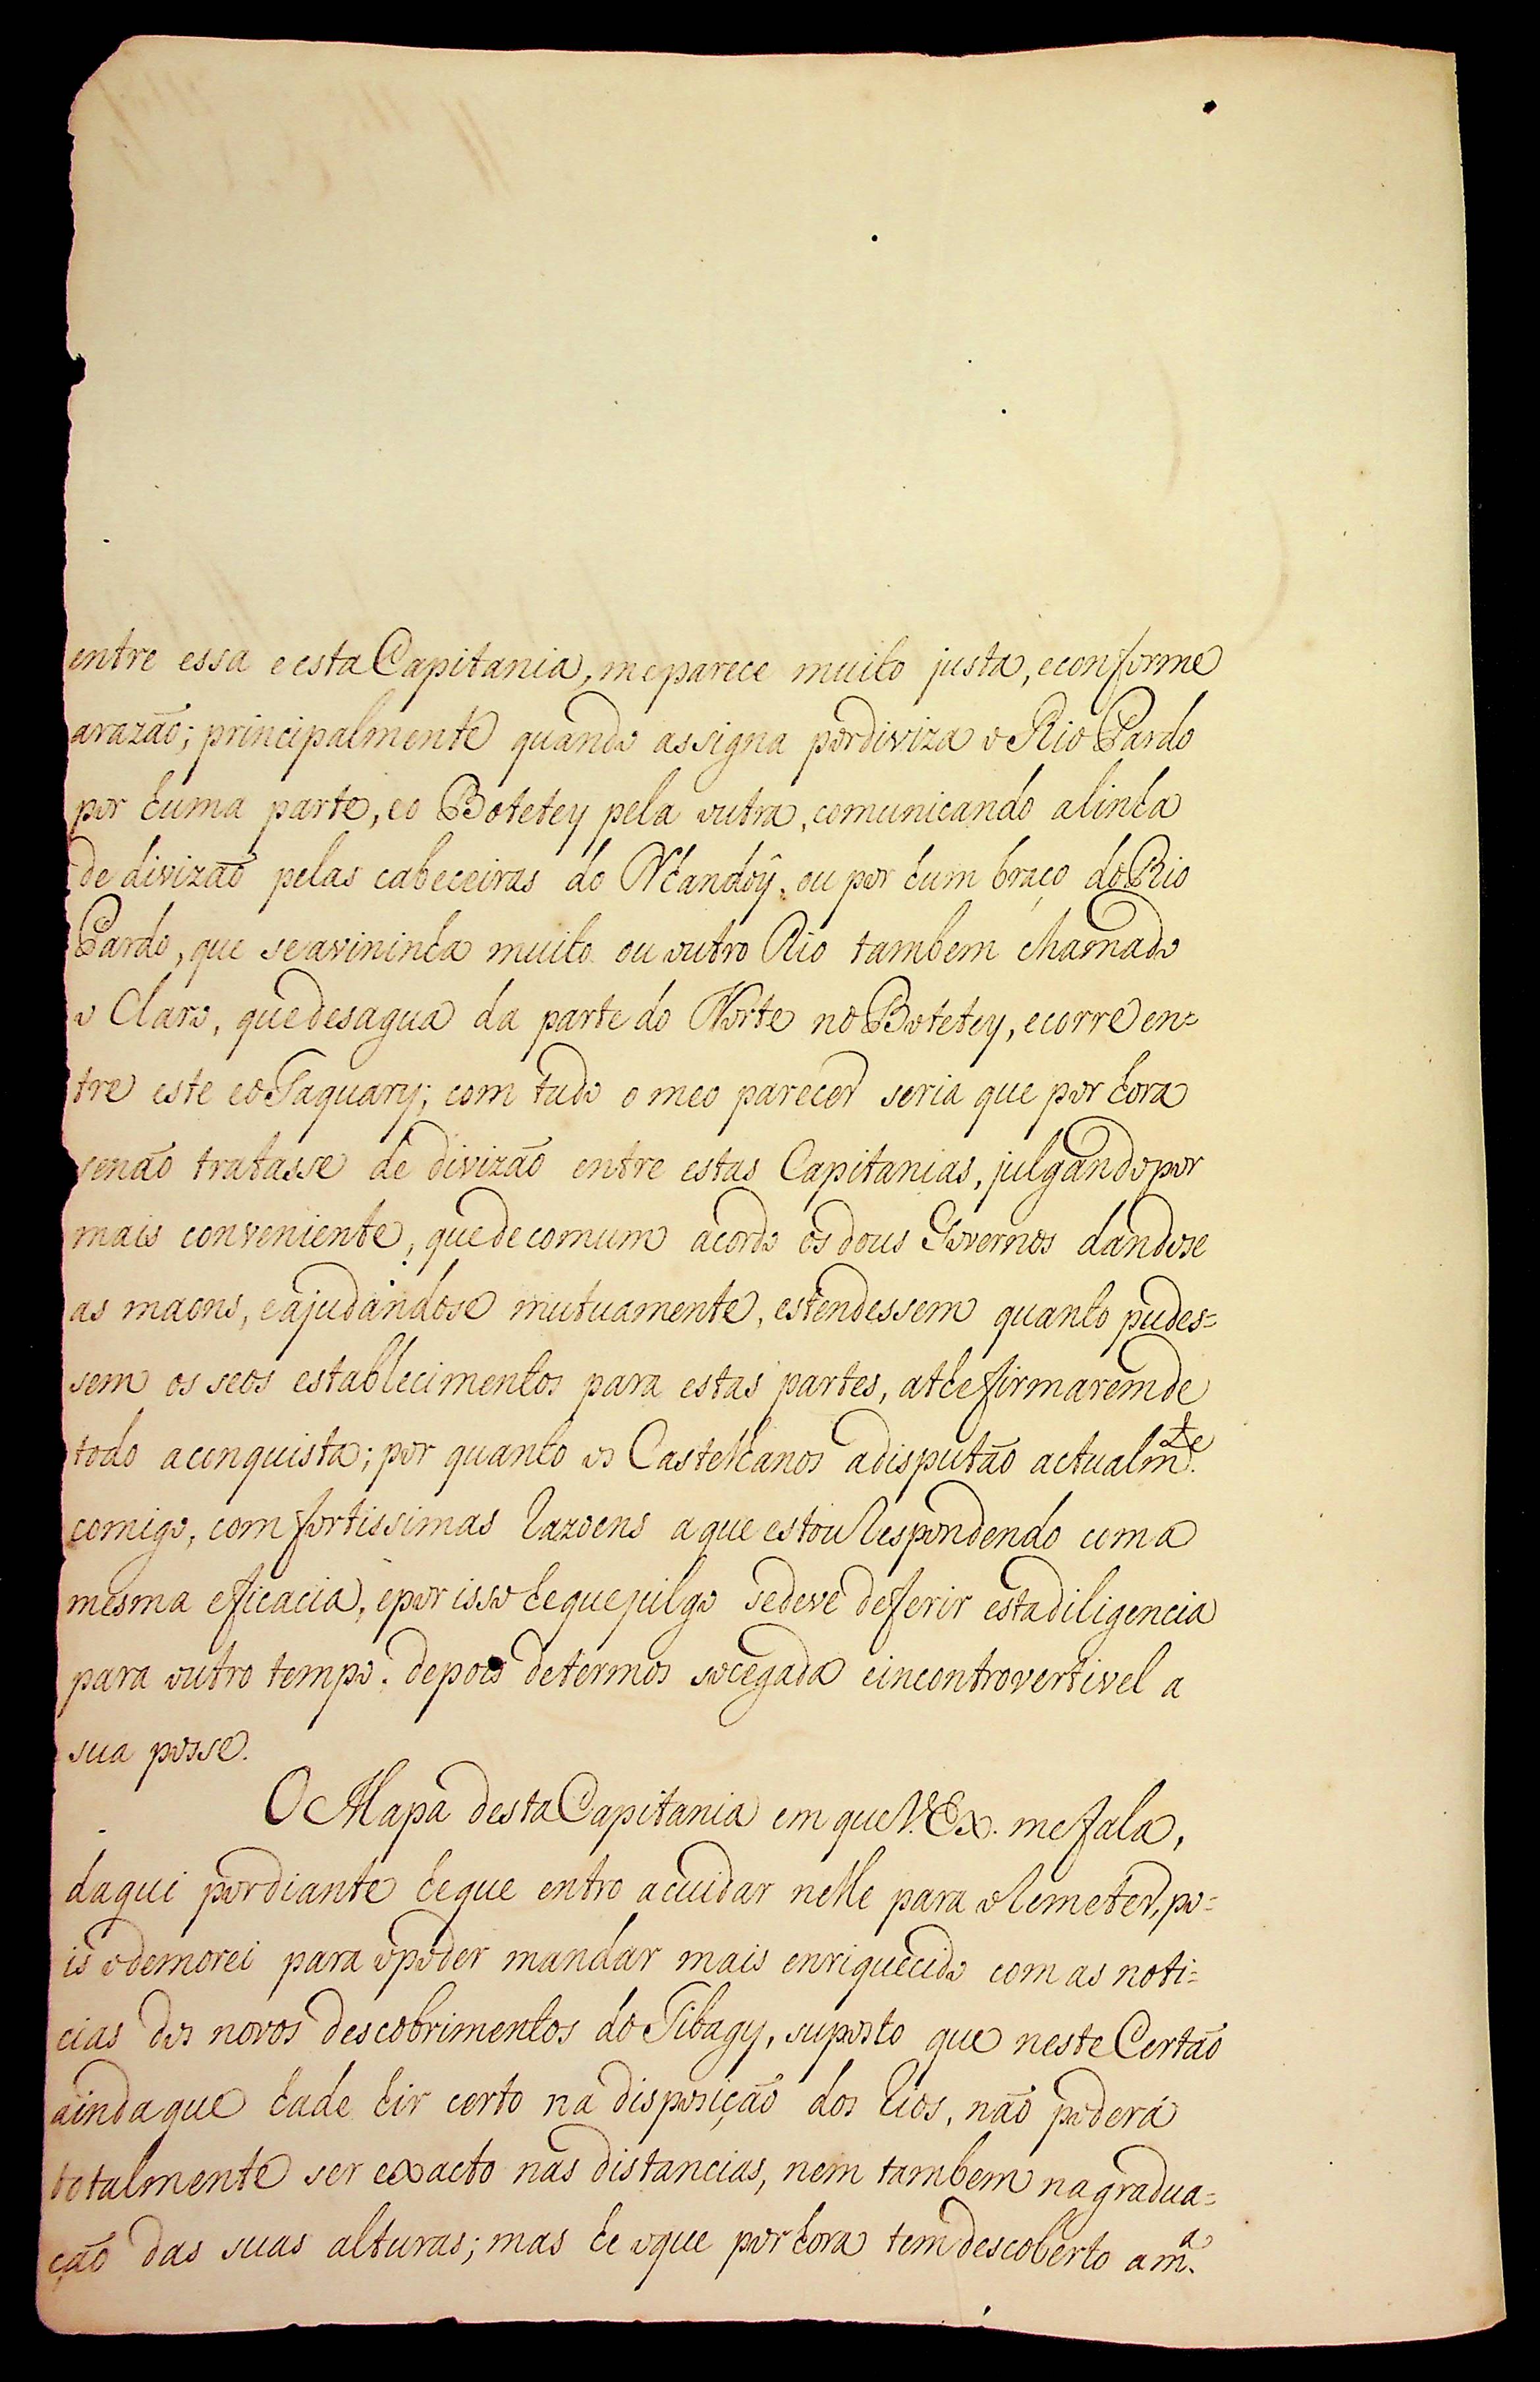 entre essa e esta Capitania, me parece muito justa, e conforme
a razaõ; principalmente quando assigna por diviza o Rio Pardo
por huma parte, e o Botetey pela outra, comunicando a linha
de divizaõ pelas cabeceiras do Nhandôy, ou por hum braço do Rio
Pardo, que se avininha muito ou outro Rio tambem chamado
o Claro, que desagua da parte do Norte no Botetey, e corre en=
tre este e o Taquary; com tudo o meo parecer seria que por hora
se naõ tratasse de divizaõ entre estas Capitanias, julgando por
mais conveniente, que de comum acordo os dous Governos dandose
as maons, e ajudandose mutuamente, estendessem quanto pudes=
sem os seos establecimentos para estas partes, athe firmarem de
todo a conquista; por quanto os Castelhanos a disputaõ actualm.te
comigo, com fortissimas razoens a que estou respondendo com a
mesma eficacia, e por isso he que julgo se deve deferir esta diligencia
para outro tempo, depois de termos socegada e incontrovertivel a
sua posse.
O Mapa desta Capitania em que V. Ex. me fala,
daqui por diante he que entro a cuidar nelle para o remeter, po=
is o demorei para o poder mandar mais enriquecido com as noti=
cias dos novos descobrimentos do Tibagy, suposto que neste Certaõ
ainda que hade hir certo na disposiçaõ dos rios, naõ poderá
totalmente ser exacto nas distancias, nem tambem na gradua=
çaõ das suas alturas; mas he o que por hora tem descoberto a m.a